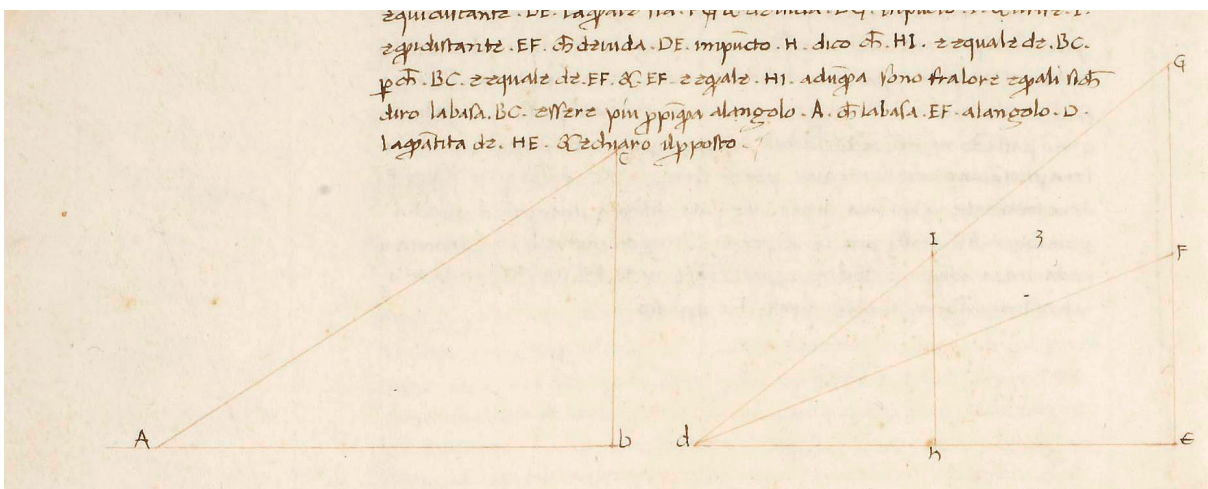 equidistante . DE . laquale sia . FI
eq̄uidistante . EF . ch̄ deuida . DE . impūcto . H . dico ch̄ . HI . e equale de . BC .
p̱ ch̄ . BC . e equale de . EF . & EF . e eq̄uale . HI . adūqua sono fralore eq̄uali
diro labasa . BC . essere piu p̱piq̄ua alangolo . A . ch̄ labasa . EF . alangolo . D .
laquātita de . HE . & e chiaro ilp̱posto .
C
G
I
3
F
A
b
d
h
E